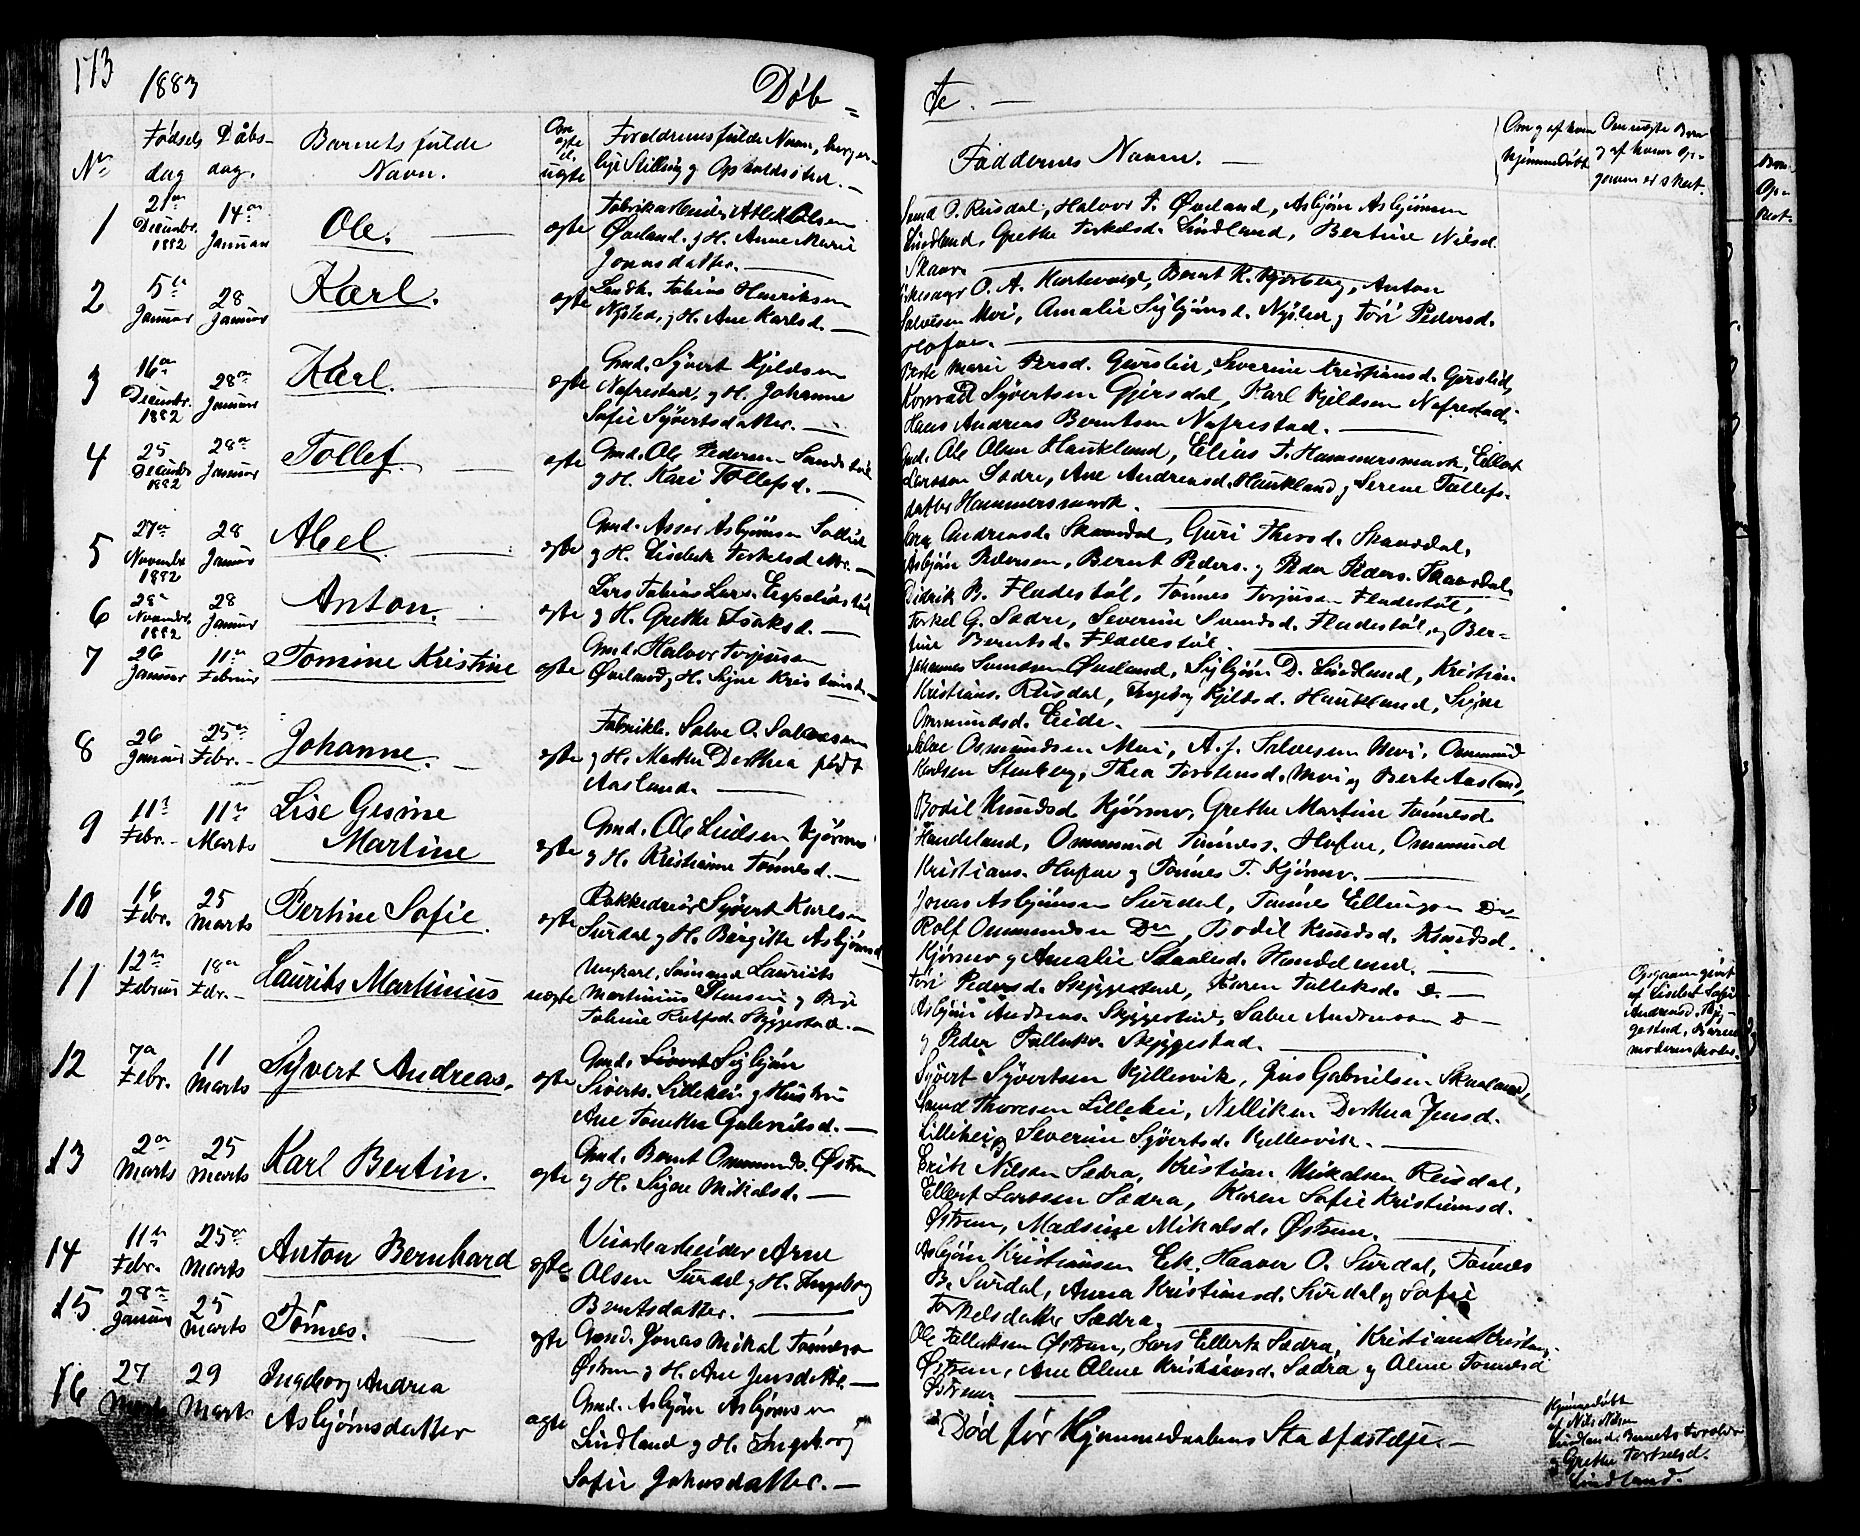 113
1883
Døb-
te. —
No
Fødsels
dag
Dåbs-
dag.
Barnets fulde
Navn.
Om
ægte
el.
uægte
Forældrenes fulde Navn, borger-
lige Stilling og Opholdssted. —
Faddernes Navn. —
Om og af hvem
hjemmedøbt
Om uægte Barn
og af hvem Op-
gaven er skeet.
1
21de
Decembr.
1882
14de
Januar
Ole.
ægte
Fabrikarbeider Atlak Olsen
Øverland. og H. Anne Marie
Jonasdatter. —
Svend O. Rusdal, Halvor T. Øverland, Asbjörn Asbjörnsen
Lindland, Grethe Torkelsd. Lindland, Bertine Nilsd.
Skaar.
2
5te
Januar
28
Januar
Karl.
ægte
Tobias Henriksen
og H. Ane Karlsd. —
O. A. Hartevelge, Bernt K. Anton
Salvesen Moi, Amalie Sigbjörnsd. og Töri Pedersd.
3
16de
Decembr.
1882
28de
Januar
Karl.
ægte
Gmd. Syvert Kjeldsen
Nafrestad, og H. Johanne
Sofie Syvertsdatter. —
Marie Persd. Gursli, Severine Kristiansd. Gursli,
Konrad Syvertsen Gjersdal, Karl Kjeldsen Nafrestad,
Hans Andreas Berntsen Nafrestad. —
4
25
Decembr
1882
28de
Januar
Tollef.
ægte
Gmd. Ole Pedersen
og H. Kari Tollefsd. —
Gmd. Ole Olsen Haukland, Elias T. Hammersmark, Ellert
Larssen Sædre, Ane Andreasd. Haukland og Serene Tollefs-
datter Hammersmark.
5
27de
Novembr
1882
28
Januar
Abel.
ægte
Gmd. Asser Asbjörnsen
og H. Lisebet Torkelsd. —
Andreasd. Skaardal, Guri Theresd. Skaardal,
Asbjörn Pedersen, Bernt Peders. og Peder Peders. Skaardal.
6
28de
Novembr.
1882
28
Januar
Anton.
ægte
Lars Tobias Lars.
og H. Grethe Isaksd. —
Didrik B. Fladestøl, Tönnes Torjusen Fladestøl,
Torkel G. Sædre, Severine Svendsd. Fladestøl, og Ber-
tine Berntsd. Fladestøl.
7
26
Januar
11te
Februar
Tomine Kristine
ægte
Gmd. Halvor Torjusen
Øverland og H. Signe
Johannes Svendsen Øverland, Sigbjörn D. Lindland, Kristian
Kristians. Rusdal, Ingeborg Kjeldsd. Haukland, Signe
Ommundsd. Eide.
8
26
Januar
25de
Febr. -
Johanne.
ægte
Fabrikb. Salve O. Salvesen
og H. Marthe Dorthea født
Aasland. —
Salve Osmundsen Moi, A. J. Salvesen Moi, Ommund
Karlsen Stenberg, Thea Torstensd. Moi og Berte Aasland,
9
11te
Febr.-
11te
Marts
Lise Gesine
Martine
ægte
Gmd. Ole Kjörmo
og H. Kristianne Tönnesd. —
Bodil Knudsd Kjörmo, Grethe Martine Tönnesd.
Handeland, Ommund Tönnes. Hafsøe, Ommund
Kristians. Hafsøe og Tönnes T. Kjörmo. —
10
16
Febr.
25
Marts
Bertine Sofie.
ægte
Syvert Karlsen
Surdal og H. Birgitte Asbjörnsd
Jonas Asbjörnsen Surdal, Tönnes Ellingsen Do
Rolf Ommundsen Do, Bodil Knudsd. Knudsd.
Kjörmo og Amalie Handeland. —
11
12te
Februar
18de
Febr. -
Laurits Martinius
uægte
Ungkarl, Sömand Laurits
Martinius Stensen og Pige
Tobine Rolfsd. Skjeggestad. —
Töri Pedersd. Skjeggestad, Karen Falleksd. D. —
Asbjörn Andreas. Skjeggestad, Salve Andreasen D —
og Peder Falleks. Skjeggestad. —
Opgaven gjort
af Lisebet Sofie
Andreasd. Skjeg-
gestad, Barne-
moderens Moder.
12
7de
Febr.
11
Marts
Syvert Andreas.
ægte
Gmd. Sivert Sigbjörn
Siverts. Lillehei og Hustru
Ane Tomthea Gabrielsd. —
Syvert Syvertsen Kjellesvik, Jens Gabrielsen Skaaland,
Svend Thoresen Lillehei, Nelliken Dorthea Jensd.
Lillehei og Severine Syvertsd. Kjellesvik. —
13
2den
Marts
25
Marts
Karl Bertin.
ægte
Gmd. Bernt Ommunds. Østrem
og H. Signe Mikalsd. —
Erik Nilsen Sædra, Kristian Mikalsen Rusdal,
Ellert Larssen Sædra, Karen Sofie Kristiansd.
Østrem, Madsine Mikalsd. Østrem. —
14
11te
Febr.
25de
Marts
Anton Bernhard
ægte
Arne
Olsen Surdal og H. Ingeborg
Berntsdatter. —
Asbjörn Kristiansen Eik, Haaver O. Surdal, Tönnes
B. Surdal, Anna Kristiansd. Surdal og Sofie
Torkelsdatter Sædra.
15
28de
Januar
25
Marts
Tönnes.
ægte
Gmd. Jonas Mikal Tönnesen
Østrem og H. Ane Jensdatter. —
Ole Falleksen Østrem, Lars Ellerts. Sædra, Kristian
Østrem, Ane Oline Kristiansd. Sædra og Oline Tönnesd
Østrem.
16
27
Marts
29
Marts
Ingeborg Andrea
Asbjørnsdatter
ægte
Gmd. Asbjörn Asbjörnsen
Lindland og H. Ingeborg
Sofie Johnsdatter. —
Død før Hjemmedaabens Stadfæstelse. —
Hjemmedøbt
af Nils Nilsen
Lindland. Barnets Forældre
og Grethe Torkelsd.
Lindland.